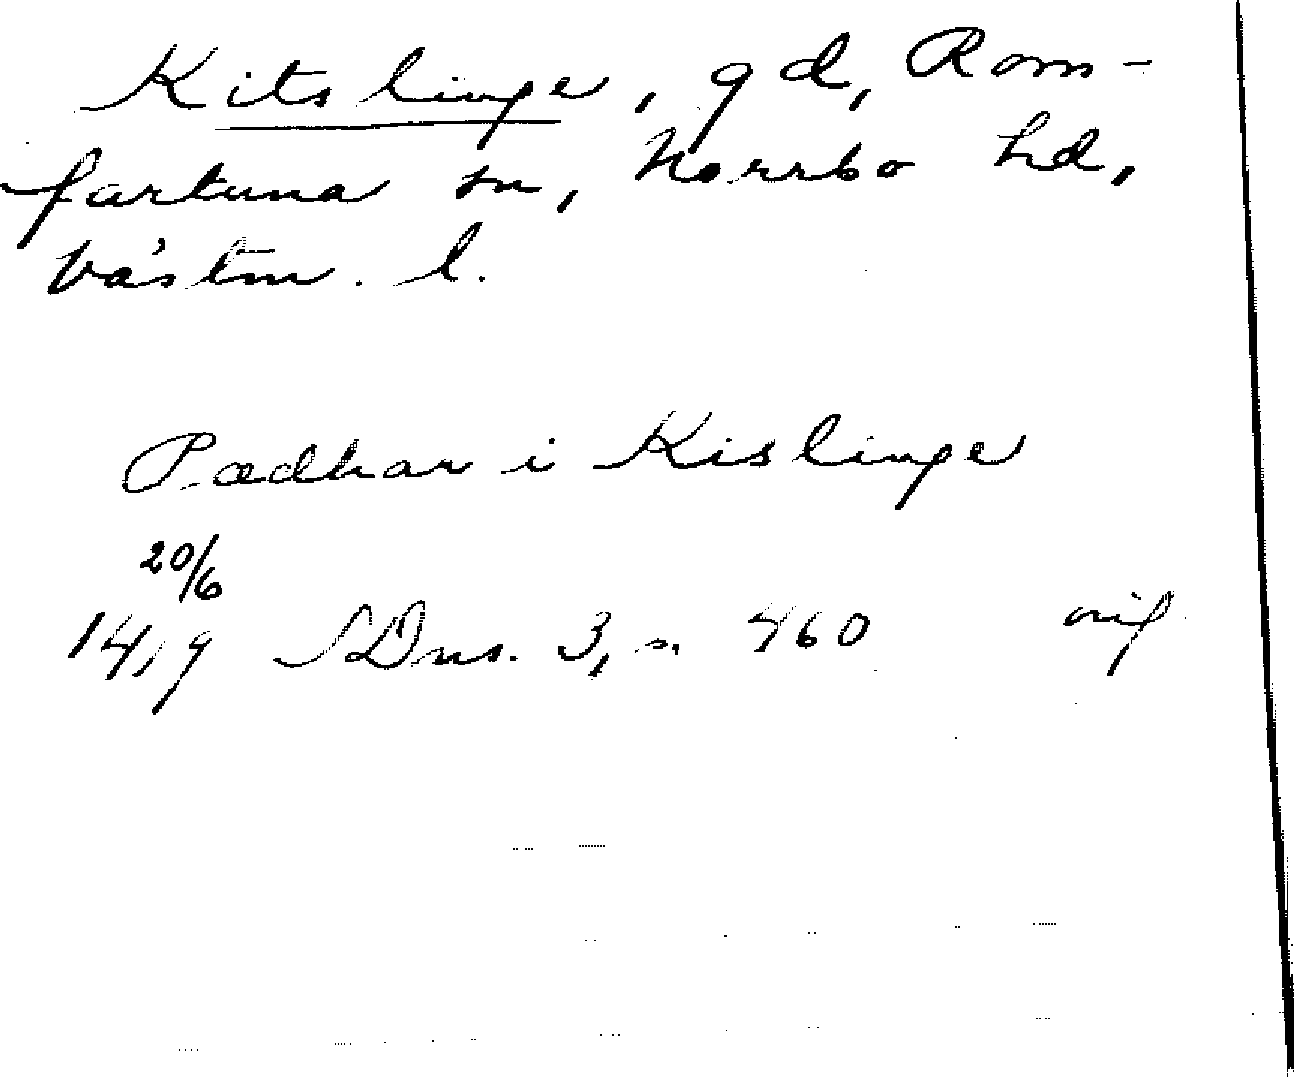 Kitslinge, gd, Rom-
fartuna sn, Norrbo hd,
Västm. l.
Pædhar i Kislinge
20/6
1419 SDns. 3, s. 460 orig